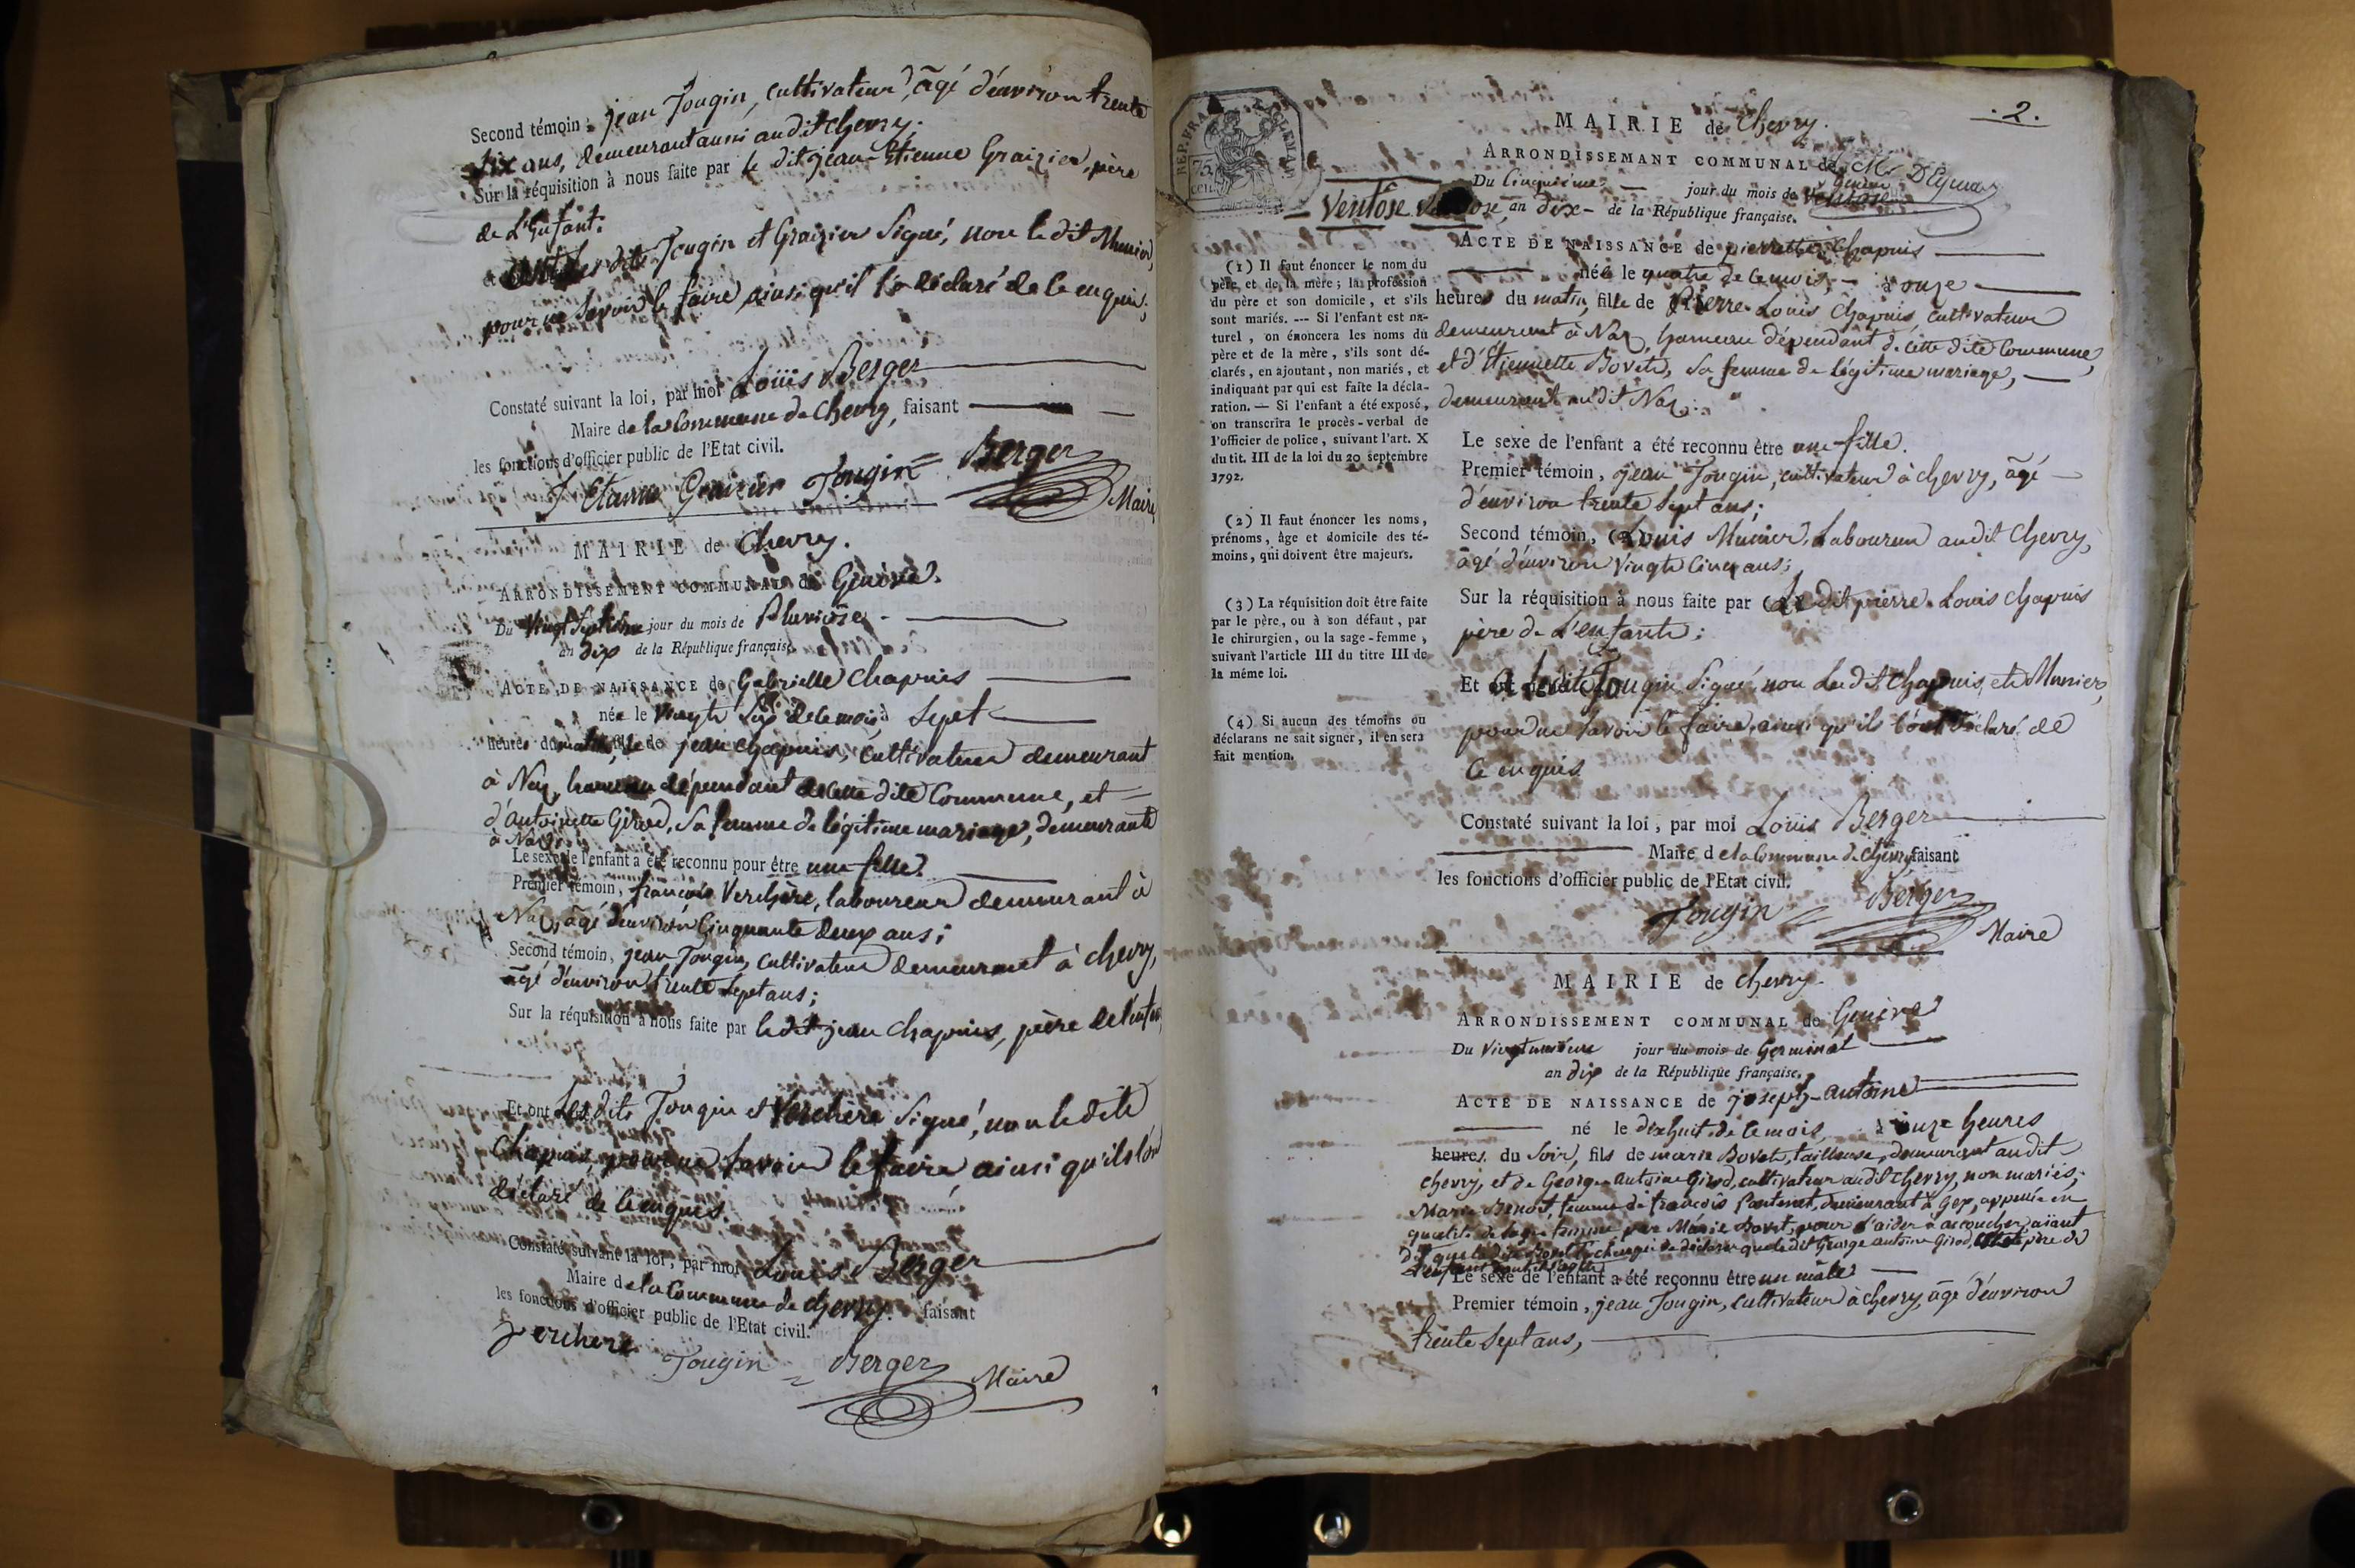 Second témoin, jean Jougin, cultivateur, âgé d'environ trente
six ans, demeurant aussi audit chevry;
Sur la réquisition à nous faite par le dit jean-Etienne Graizier, père
de L'Enfant.
Et ont les dits Jougin et Graizier Signé, non le dit Munier,
pour ne savoir le faire ainsi qu'il l'a déclaré de ce enquis;
Constaté suivant la loi, par moi Louis Berger
Maire de la Commune de Chevry, faisant
les fonctions d'officier public de l'Etat civil.
J Etienne Graizier Jougin Berger
Maire
MAIRIE de Chevry.
ARRONDISSEMENT COMMUNAL de Genève.
Du Vingt Septième jour du mois de Pluviôse
an dix de la République française.
ACTE DE NAISSANCE de Gabrielle Chapuis
née le Vingt Six de ce mois à Sept
heures du matin, fille de jean Chapuis, cultivateur demeurant
à Naz, hameau dépendant de cette dite Commune, et
d'Antoinette Girod, Sa femme de légitime mariage, demeurante
à Naz;
Le sexe de l'enfant a été reconnu pour être une fille.
Premier témoin, françois Verchère, laboureur demeurant à
Naz, âgé d'environ Cinquante deux ans;
Second témoin, jean Jougin, cultivateur demeurant à chevry,
âgé d'environ trente sept ans;
Sur la réquisition à nous faite par le dit jean Chapuis, père de
Et ont Les dits Jougin et Verchère Signé, non le dit
Chapuis, pour ne Savoir le faire, ainsi qu'ils
déclaré de ce enquis
Constaté suivant la loi, par moi Louis Berger
Maire de la Commune de chevry. faisant
les fonctions d'officier public de l'Etat civil.
Verchere
Jougin Berger
Maire
2.
REP. FRA
75
CEN
MAIRIE de Chevry.
ARRONDISSEMANT COMMUNAL de
Genève
Du Cinquième jour du mois de Ventose
Ventôse an dix de la République française.
ACTE DE NAISSANCE de pierrette Chapuis
née le quatre de ce mois, à onze
heures du matin, fille de Pierre-Louis Chapuis, cultivateur
demeurant à Naz, hameau dépendant de cette dite Commune,
et d'Etiennette Bovet, Sa femme de légitime mariage,
demeurant au dit Naz;
Le sexe de l'enfant a été reconnu être une fille.
Premier témoin, jean Jougin, cultivateur à chevry, âgé
d'environ trente Sept ans;
Second témoin, Louis Munier, Laboureur audit Chevry,
âgé d'environ Vingt Cinq ans;
Sur la réquisition à nous faite par Le dit pierre-Louis Chapuis
père de L'enfant;
Et a le dit Jougin Signé, non Les dits Chapuis, et Munier,
pour ne Savoir le faire, ainsi qu'ils l'ont déclaré de
ce enquis
Constaté suivant la loi, par moi Louis Berger
Maire de la Commune de Chevry, faisant
les fonctions d'officier public de l'Etat civil.
Jougin Berger
Maire
(1) Il faut énoncer le nom du
père et de la mère; la profession
du père et son domicile, et s'ils
sont mariés. --- Si l'enfant est na-
turel, on énoncera les noms du
père et de la mère, s'ils sont dé-
clarés, en ajoutant, non mariés, et
indiquant par qui est faite la décla-
ration. — Si l'enfant a été exposé,
on transcrira le procès-verbal de
l'officier de police, suivant l'art. X
du tit. III de la loi du 20 septembre
1792.
(2) Il faut énoncer les noms,
prénoms, âge et domicile des té-
moins, qui doivent être majeurs.
(3) La réquisition doit être faite
par le père, ou à son défaut, par
le chirurgien, ou la sage-femme,
suivant l'article III du titre III de
la méme loi.
(4) Si aucun des témoins ou
déclarans ne sait signer, il en sera
fait mention.
MAIRIE de Chevry.
ARRONDISSEMENT COMMUNAL de Genève
Du Vingtunième jour du mois de Germinal
an dix de la République française.
ACTE DE NAISSANCE de joseph-antoine
né le dixhuit de ce mois, à onze heures
heures du Soir, fils de marie Bovet, tailleuse, demeurant audit
chevry, et de George Antoine Girod, cultivateur audit chevry, non mariés;
Marie Benoit, femme de françois Pantenet, demeurant à Gex, appellée en
qualité de Sage femme par Marie Bovet, pour l'aider à accoucher, aïant
dit que la dite Bovet l'a chargée de déclarer que le dit George Antoine Girod, est père de
Le sexe de l'enfant a été reconnu être un mâle.
Premier témoin, jean Jougin, cultivateur à chevry, âgé d'environ
trente Sept ans,